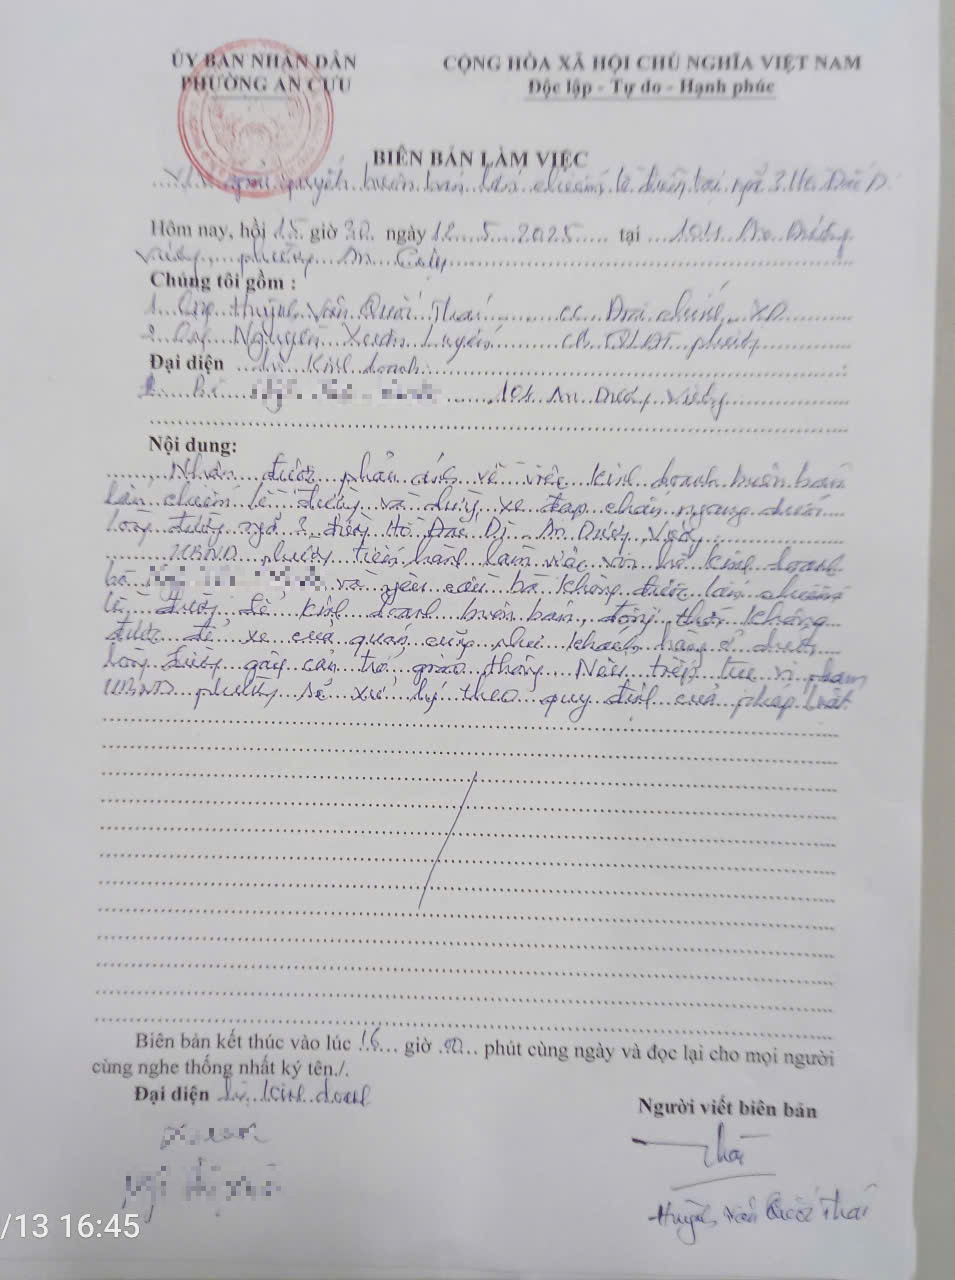 ỦY BAN NHÂN DÂN
PHƯỜNG AN CỰU
CỘNG HÒA XÃ HỘI CHỦ NGHĨA VIỆT NAM
Độc lập - Tự do - Hạnh phúc
BIÊN BẢN LÀM VIỆC
quyết buôn bán lấn chiếm lề đường tại ngã 3 Hồ Đắc D.
Hôm nay, hồi 15 giờ 30 ngày 12.5.2025 tại 104 An Dương
Vương, phường An Cựu
Chúng tôi gồm :
1. Ông Huỳnh Văn Quốc Thái CC Địa chính XD
2. Ông Nguyễn Xuân Luyến phường
Đại diện hộ Kinh doanh
Bà 104 An Dương Vương
Nội dung:
Nhận được phản ánh về việc kinh doanh buôn bán
lấn chiếm lề đường và dựng xe đạp chắn ngang dưới
lòng đường ngã 3 đường Hồ Đắc Di, An Dương Vương
UBND phường tiến hành làm việc với hộ kinh doanh
bà và yêu cầu bà không được lấn chiếm
lề đường để kinh doanh buôn bán, đồng thời không
được để xe của quán cũng như khách hàng ở dưới
lòng đường gây cản trở giao thông. Nếu tiếp tục vi phạm
UBND phường sẽ xử lý theo quy định của pháp luật.
Biên bản kết thúc vào lúc 16 giờ 00 phút cùng ngày và đọc lại cho mọi người
cùng nghe thống nhất ký tên./.
Đại diện hộ kinh doanh
Người viết biên bản
Thái
Huỳnh Văn Quốc Thái
/13 16:45